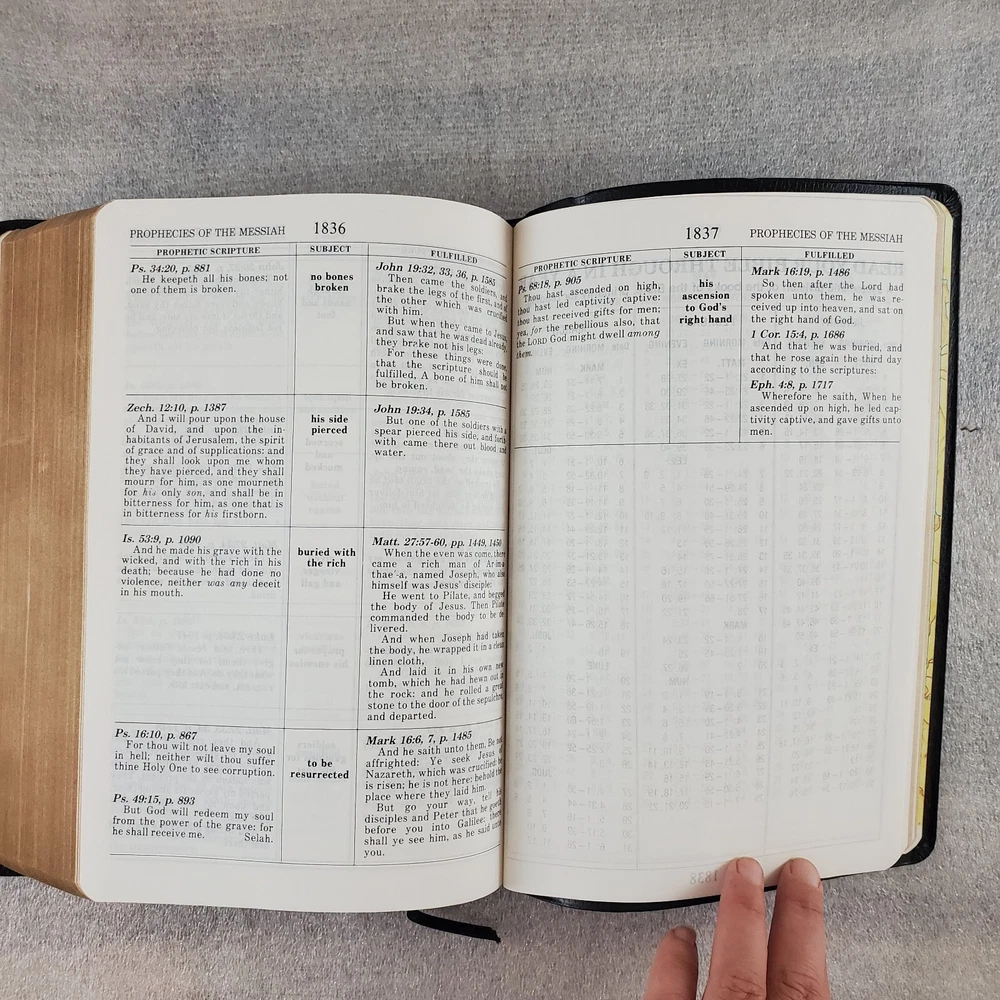 PROPHECIES OF THE MESSIAH
1836
PROPHETIC SCRIPTURE
SUBJECT
FULFILLED
Ps. 34:20, p. 881
He keepeth all his bones; not
one of them is broken.
no bones
broken
John 19:32, 33, 36, p. 1585
Then came the soldiers, and
brake the legs of the first, and of
the other which was crucified
with him.
But when they came to Jesus,
and saw that he was dead already,
they brake not his legs:
For these things were done,
that the scripture should be
fulfilled, A bone of him shall not
be broken.
Zech. 12:10, p. 1387
And I will pour upon the house
of David, and upon the in-
habitants of Jerusalem, the spirit
of grace and of supplications: and
they shall look upon me whom
they have pierced, and they shall
mourn for him, as one mourneth
for his only son, and shall be in
bitterness for him, as one that is
in bitterness for his firstborn.
his side
pierced
John 19:34, p. 1585
But one of the soldiers with a
spear pierced his side, and forth
with came there out blood and
water.
Is. 53:9, p. 1090
And he made his grave with the
wicked, and with the rich in his
death; because he had done no
violence, neither was any deceit
in his mouth.
buried with
the rich
Matt. 27:57-60, pp. 1449, 1450
When the even was come, there
came a rich man of Ar-im-a-
thae'-a, named Joseph, who also
himself was Jesus' disciple:
He went to Pilate, and begged
the body of Jesus. Then Pilate
commanded the body to be de-
livered.
And when Joseph had taken
the body, he wrapped it in a clean
linen cloth,
And laid it in his own new
tomb, which he had hewn out in
the rock: and he rolled a great
stone to the door of the sepulchre,
and departed.
Ps. 16:10, p. 867
For thou wilt not leave my soul
in hell; neither wilt thou suffer
thine Holy One to see corruption.
Ps. 49:15, p. 893
But God will redeem my soul
from the power of the grave: for
he shall receive me. Selah.
to be
resurrected
Mark 16:6, 7, p. 1485
And he saith unto them, Be not
affrighted: Ye seek Jesus of
Nazareth, which was crucified: he
is risen; he is not here: behold the
place where they laid him.
But go your way, tell his
disciples and Peter that he goeth
before you into Galilee: there
shall ye see him, as he said unto
you.
1837
PROPHECIES OF THE MESSIAH
PROPHETIC SCRIPTURE
SUBJECT
FULFILLED
Ps. 68:18, p. 905
Thou hast ascended on high,
thou hast led captivity captive:
thou hast received gifts for men;
yea, for the rebellious also, that
the LORD God might dwell among
them.
his
ascension
to God's
right hand
Mark 16:19, p. 1486
So then after the Lord had
spoken unto them, he was re-
ceived up into heaven, and sat on
the right hand of God.
1 Cor. 15:4, p. 1686
And that he was buried, and
that he rose again the third day
according to the scriptures:
Eph. 4:8, p. 1717
Wherefore he saith, When he
ascended up on high, he led cap-
tivity captive, and gave gifts unto
men.